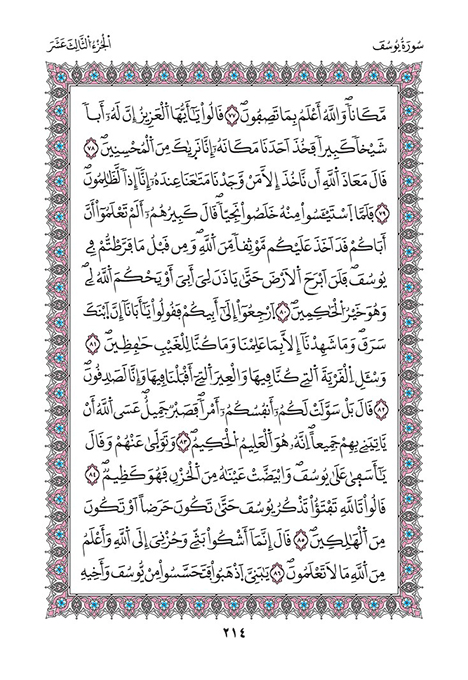 سُورَةُ يُوسُفَ
اَلْجُزْءُ الثَّالِثَ عَشَرَ
مَّكَاناٗۖ وَاللَّهُ أَعْلَمُ بِمَا تَصِفُونَۖ ٧٧ قَالُواْ يَٰٓأَيُّهَا اَ۬لْعَزِيزُ إِنَّ لَهُۥٓ أَباٗ
شَيْخاٗ كَبِيراٗ فَخُذْ اَحَدَنَا مَكَانَهُۥٓۖ إِنَّا نَر۪يٰكَ مِنَ اَ۬لْمُحْسِنِينَۖ ٧٨
قَالَ مَعَاذَ اَ۬للَّهِ أَن نَّاخُذَ إِلَّا مَنْ وَّجَدْنَا مَتَٰعَنَا عِندَهُۥٓ إِنَّآ إِذاٗ لَّظَٰلِمُونَۖ
٧٩ فَلَمَّا اَ۪سْتَيْـَٔسُواْ مِنْهُ خَلَصُواْ نَجِيّاٗۖ قَالَ كَبِيرُهُمُۥٓ أَلَمْ تَعْلَمُوٓاْ أَنَّ
أَبَاكُمْ قَدَ اَخَذَ عَلَيْكُم مَّوْثِقاٗ مِّنَ اَ۬للَّهِۖ وَمِن قَبْلُ مَا فَرَّطتُّمْ فِے
يُوسُفَۖ فَلَنَ اَبْرَحَ اَ۬لَارْضَ حَتَّىٰ يَاذَنَ لِيَ أَبِيَ أَوْ يَحْكُمَ اَ۬للَّهُ لِےۖ
وَهُوَ خَيْرُ اُ۬لْحَٰكِمِينَۖ ٨٠ اَ۪رْجِعُوٓاْ إِلَىٰٓ أَبِيكُمْ فَقُولُواْ يَٰٓأَبَانَآ إِنَّ اَ۪بْنَكَ
سَرَقَۖ وَمَا شَهِدْنَآ إِلَّا بِمَا عَلِمْنَا وَمَا كُنَّا لِلْغَيْبِ حَٰفِظِينَۖ ٨١
وَسْـَٔلِ اِ۬لْقَرْيَةَ اَ۬لتِے كُنَّا فِيهَا وَالْعِيرَ اَ۬لتِےٓ أَقْبَلْنَا فِيهَا وَإِنَّا لَصَٰدِقُونَۖ
٨٢ قَالَ بَلْ سَوَّلَتْ لَكُمُۥٓ أَنفُسُكُمُۥٓ أَمْراٗۖ فَصَبْرٞ جَمِيلٌۖ عَسَى اَ۬للَّهُ أَنْ
يَّاتِيَنِے بِهِمْ جَمِيعاًۖ اِنَّهُۥ هُوَ اَ۬لْعَلِيمُ اُ۬لْحَكِيمُۖ ٨٣ وَتَوَلَّىٰ عَنْهُمْ وَقَالَ
يَٰٓأَسَفَىٰ عَلَىٰ يُوسُفَۖ وَابْيَضَّتْ عَيْنَٰهُ مِنَ اَ۬لْحُزْنِ فَهُوَ كَظِيمٞۖ ٨٤
قَالُواْ تَاللَّهِ تَفْتَؤُاْ تَذْكُرُ يُوسُفَ حَتَّىٰ تَكُونَ حَرَضاً اَوْ تَكُونَ
مِنَ اَ۬لْهَٰلِكِينَۖ ٨٥ قَالَ إِنَّمَآ أَشْكُواْ بَثِّے وَحُزْنِيَ إِلَى اَ۬للَّهِ وَأَعْلَمُ
مِنَ اَ۬للَّهِ مَا لَا تَعْلَمُونَۖ ٨٦ يَٰبَنِيَّ اَ۪ذْهَبُواْ فَتَحَسَّسُواْ مِنْ يُّوسُفَ وَأَخِيهِ
٢١٤